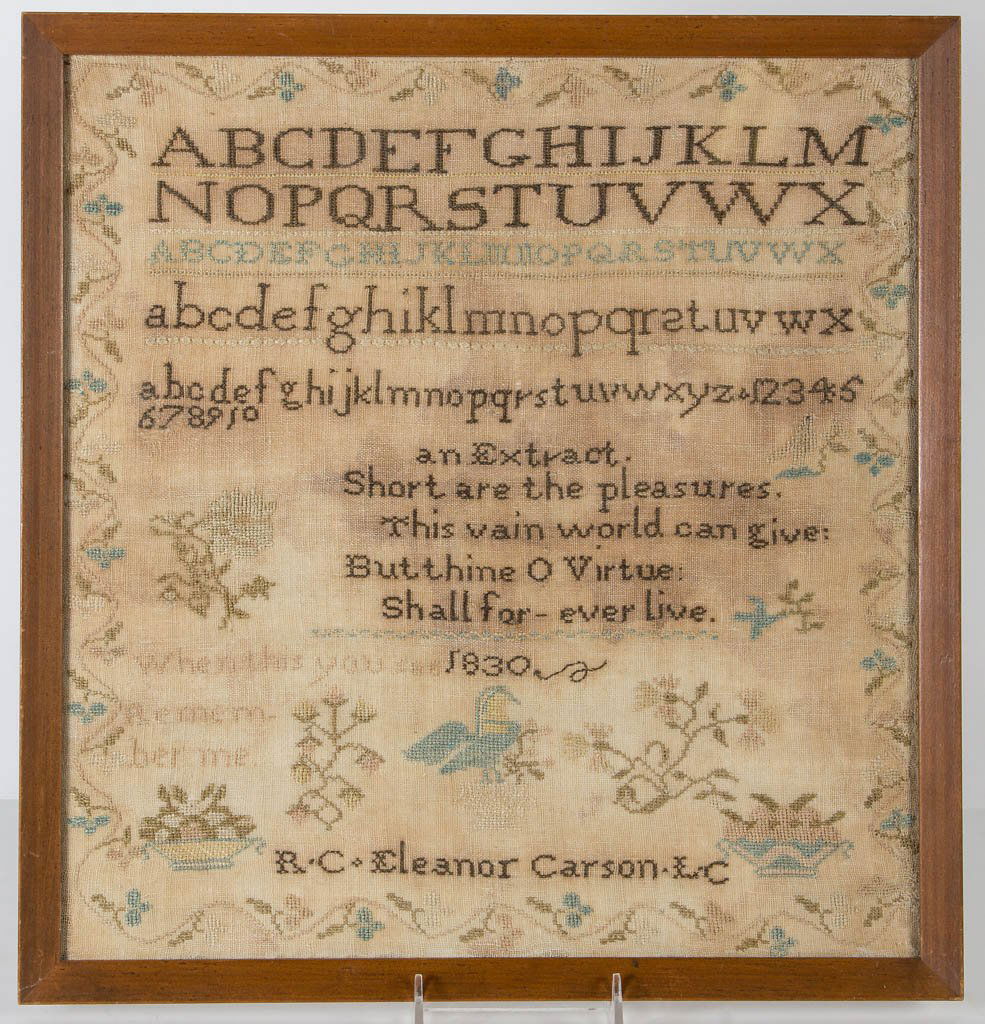 ABCDEFGHIJKLM
NOPQRSTUVWX
ABCDEFGHIJKLMNOPQRSTUVWX
abcdefghiklmnopqrstuvwx
abcdefghijklmnopqrstuvwxyz&12345
678910
an Extract.
Short are the pleasures.
This vain world can give:
But thine O Virtue:
Shall for-ever live.
When this you see
1830
Remem-
ber me.
R·C· Eleanor Carson·LC